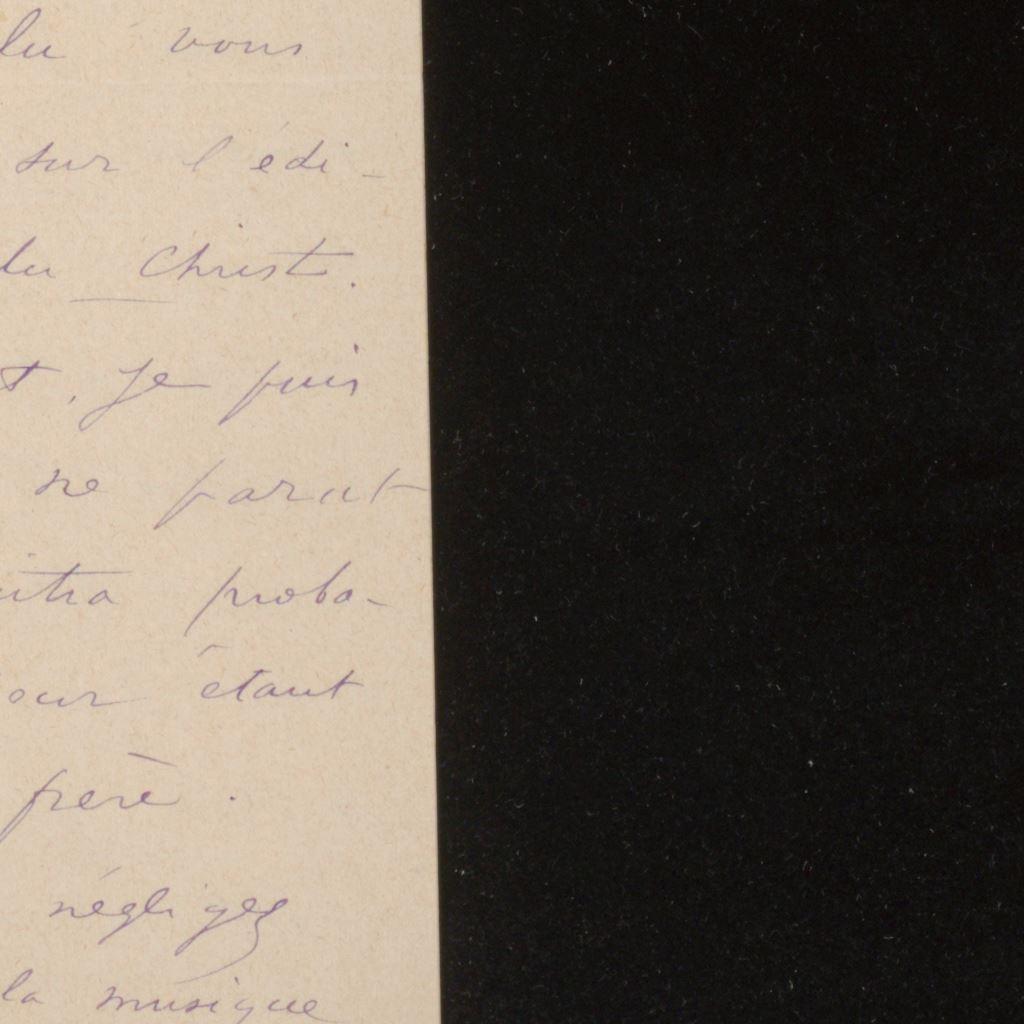 lu vous
sur l'édi-
du Christ.
t, je puis
ne parut
itra proba-
jour étant
frère.
négligez
la musique